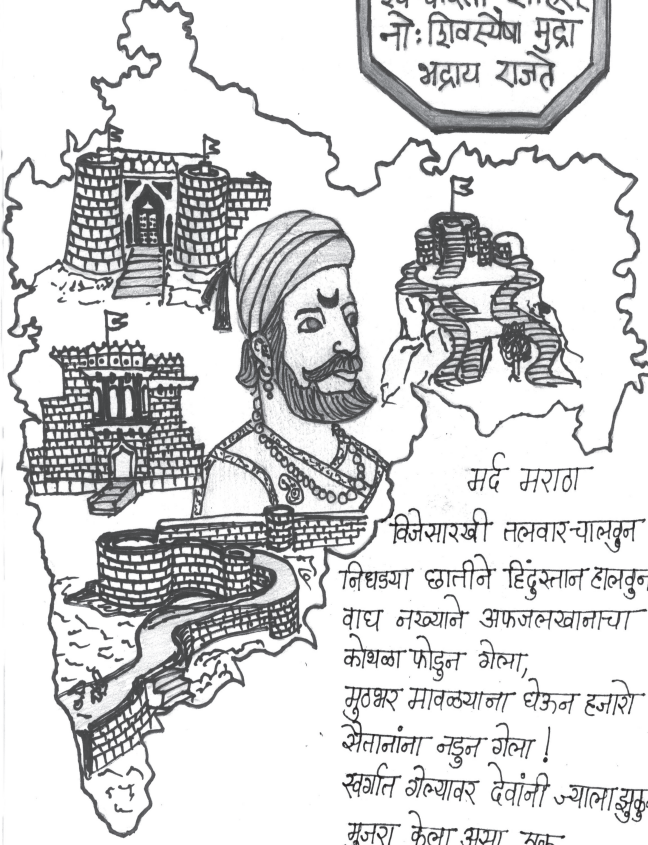 नो: शिवस्यैषा मुद्रा
भद्राय राजते
मर्द मराठा
विजेसारखी तलवार चालवुन
निधड्या छातीने हिंदुस्तान हालवुन
वाघ नख्याने अफजलखानाचा
कोथळा फोडुन गेला,
मुठभर मावळ्याना घेऊन हजारो
सैतानांना नडुन गेला !
स्वर्गात गेल्यावर देवांनी ज्याला
मुजरा केला असा